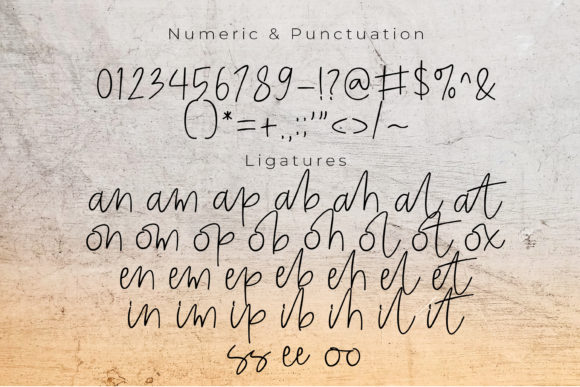 Numeric & Punctuation
0123456789-!?@#$%^&
()*=+.,:;'"<>/~
Ligatures
an am ap ab ah al at
on om op ob oh ol ot ox
en em ep eb eh el et
in im ip ib ih il it
ss ee oo